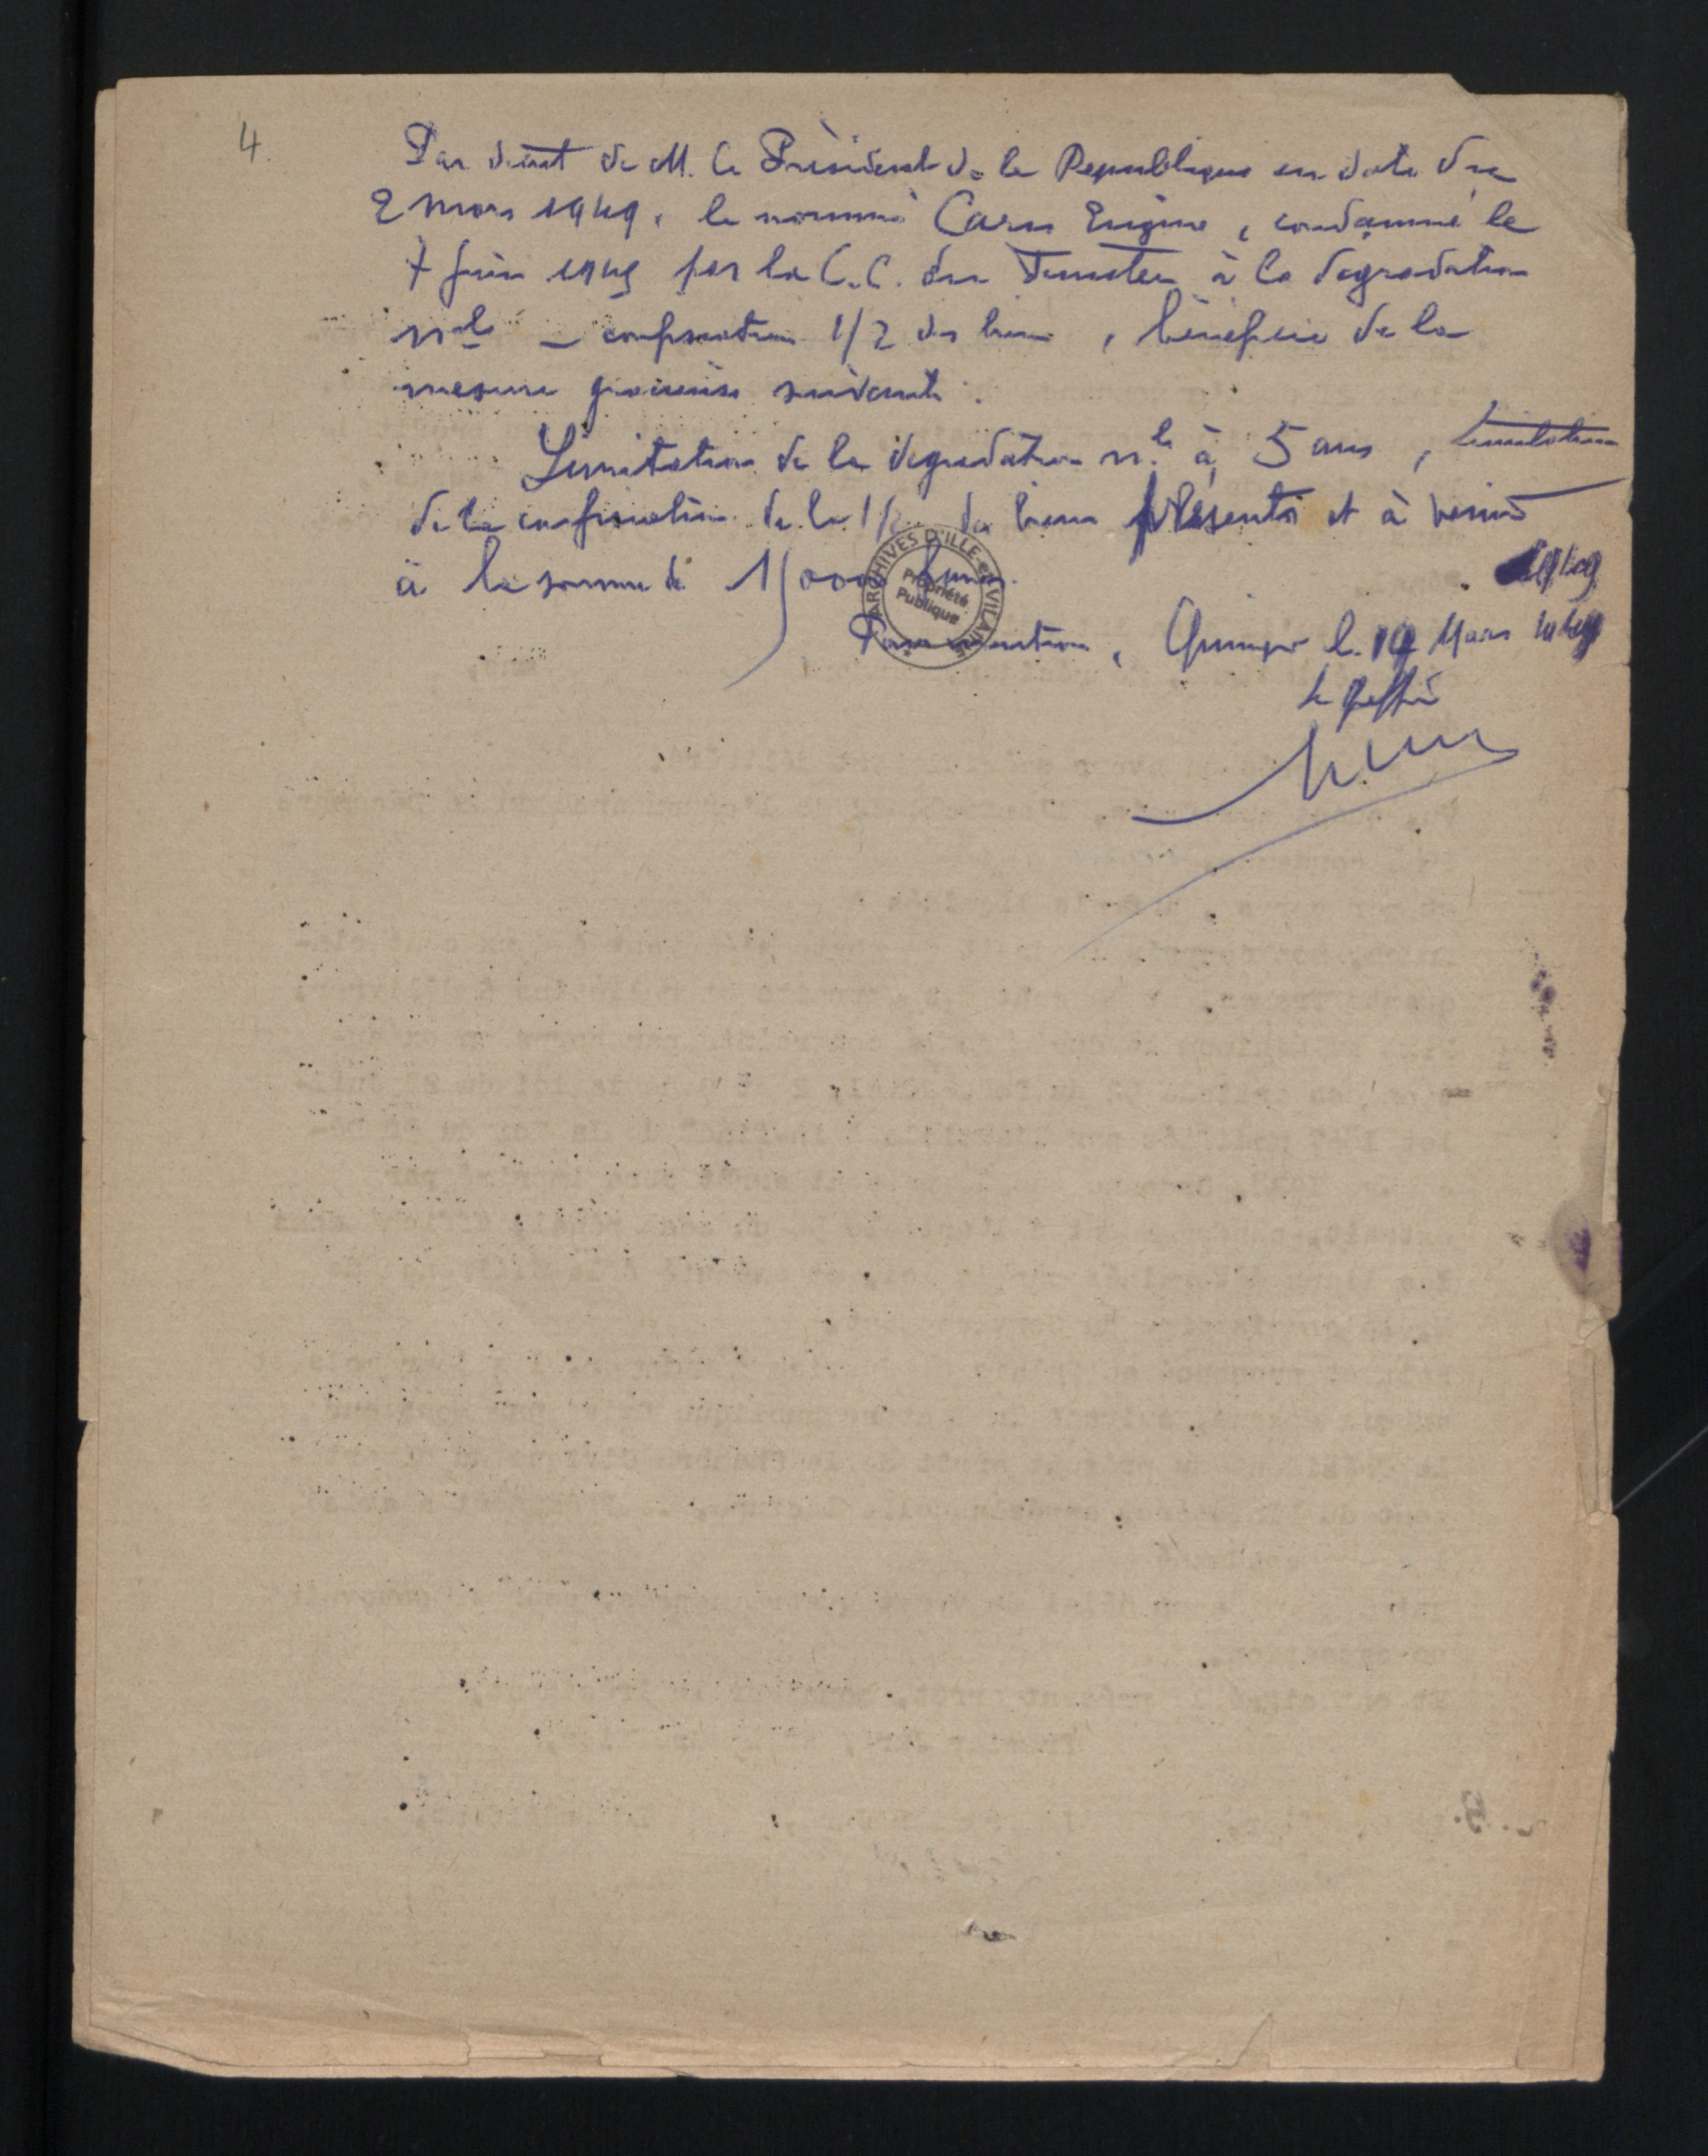 4.
Par décret de M. le Président de la République en date du
2 mars 1949, le nommé Carn Eugène, condamné le
7 juin 1945 par la C.C. du Finistère à la dégradation
nle – confiscation 1/2 des biens, bénéficie de la
mesure gracieuse suivante :
Limitation de la dégradation nle à 5 ans, limitation
de la confiscation de la 1/2 des biens présents et à venir
à la somme de 15000 francs.
Pour mention, Quimper le 19 Mars 1949
Le greffier
ARCHIVES D'ILLE-et-VILAINE
Propriété
Publique